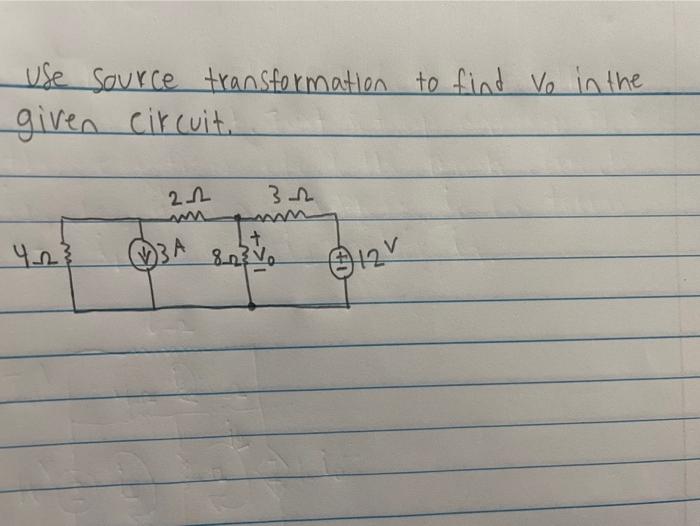 Use Source transformation to find Vo in the
given circuit.
2Ω 3Ω
4Ω 3A 8Ω + Vo - + - 12V